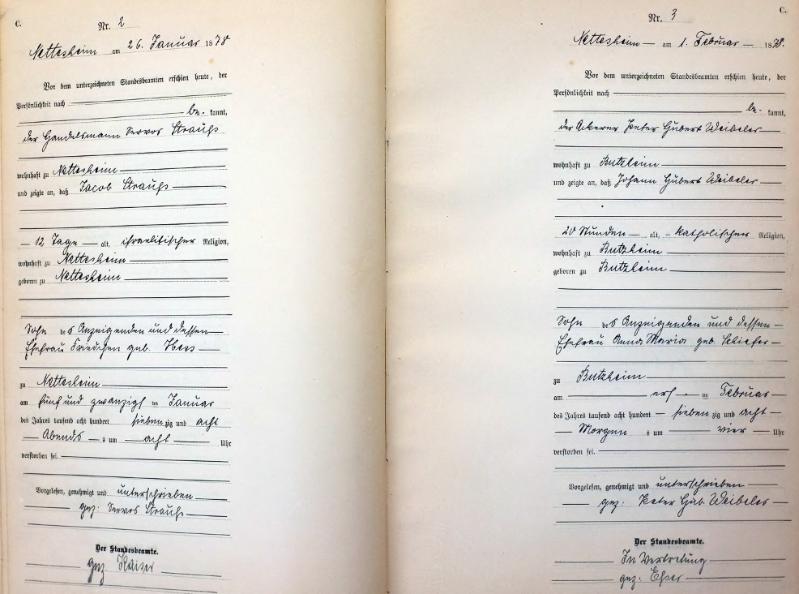 C.
Nr. 2
Nettesheim am 26. Januar 1878
Vor dem unterzeichneten Standesbeamten erschien heute, der
Persönlichkeit nach
be- kannt,
der Handelsmann Servos Strauß
wohnhaft zu Nettesheim
und zeigte an, daß Jacob Strauß
12 Tage alt, israelitischer Religion,
wohnhaft zu Nettesheim
geboren zu Nettesheim
Sohn des Anzeigenden und dessen
Ehefrau Friedchen geb.
zu Nettesheim
am fünf und zwanzigst en Januar
des Jahres tausend acht hundert sieben zig und acht
Abends um acht Uhr
verstorben sei.
Vorgelesen, genehmigt und unterschrieben
gez: Servos Strauß
Der Standesbeamte.
gez Kaiser
C.
Nr. 3
Nettesheim am 1. Februar 1878.
Vor dem unterzeichneten Standesbeamten erschien heute, der
Persönlichkeit nach
be- kannt,
der Ackerer Peter Hubert Weibeler
wohnhaft zu Butzheim
und zeigte an, daß Johann Hubert Weibeler
20 Stunden alt, katholischer Religion,
wohnhaft zu Butzheim
geboren zu Butzheim
Sohn des Anzeigenden und dessen
Ehefrau Anna Maria geb. Schiefer
zu Butzheim
am ersten Februar
des Jahres tausend acht hundert sieben zig und acht
Morgens um vier Uhr
verstorben sei.
Vorgelesen, genehmigt und unterschrieben
gez: Peter Hub. Weibeler
Der Standesbeamte.
In Vertretung
gez: Esser